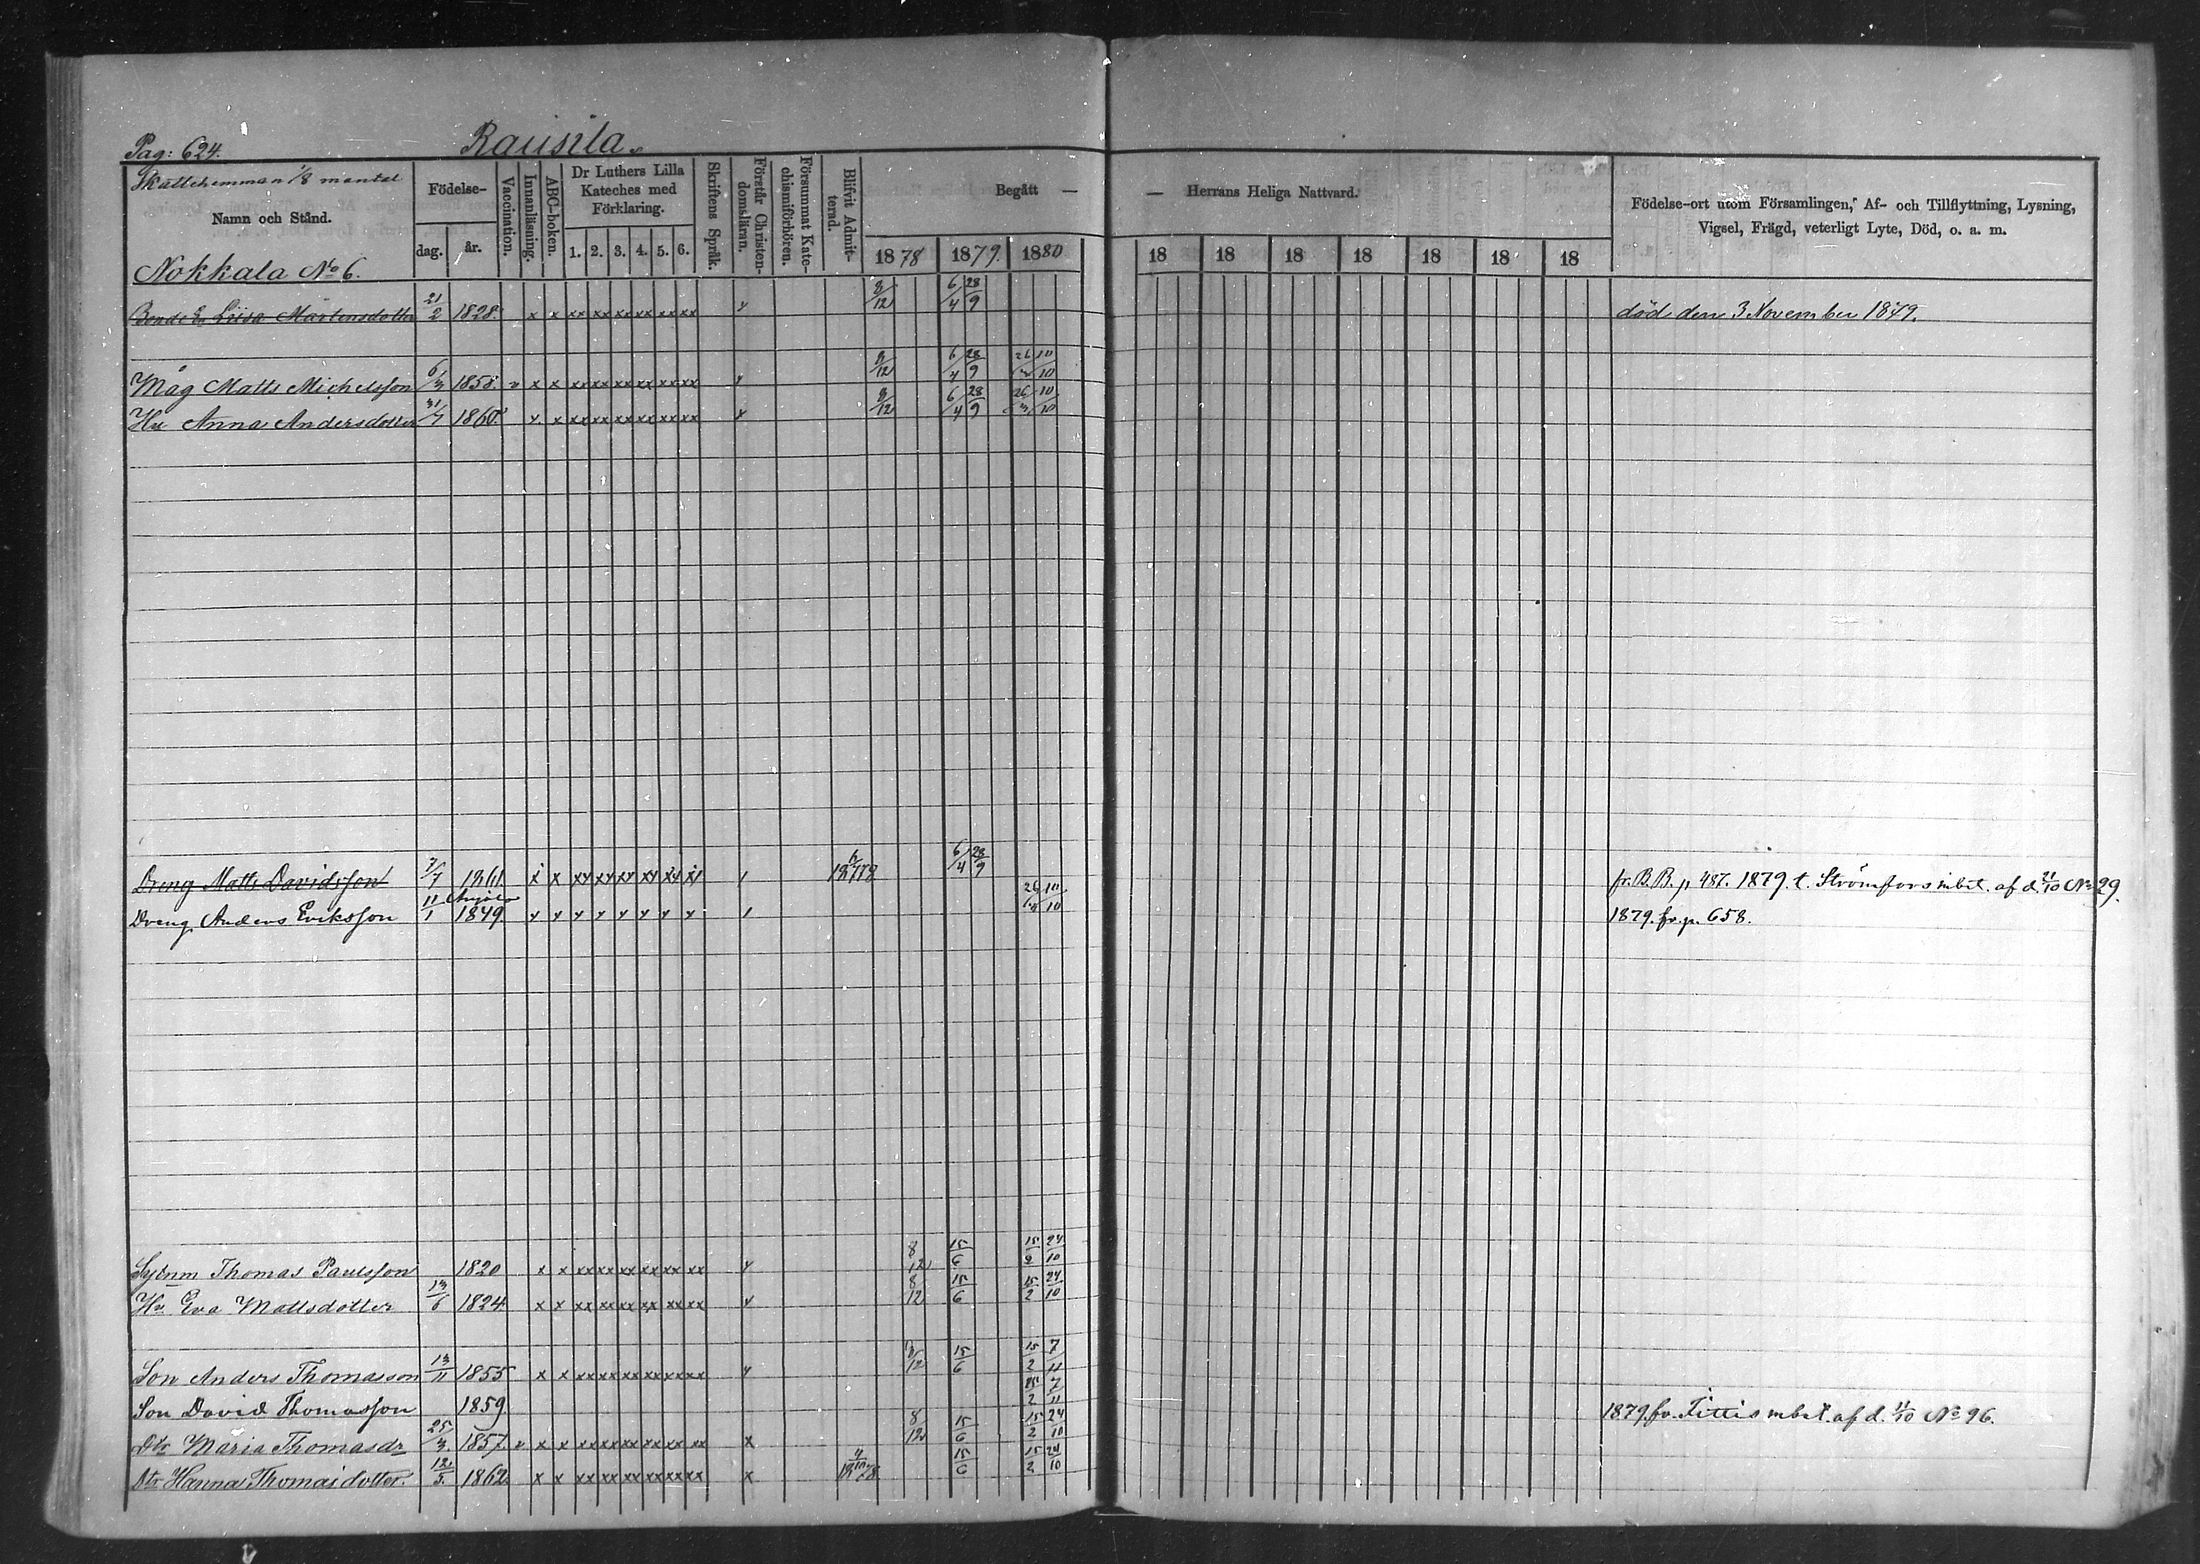 Pag: 624. Rausila.
Skattehemman 1/8 mantal
Namn och Stånd.
Födelse-
dag. år.
Vaccination.
Innanläsning.
ABC-boken.
Dr Luthers Lilla
Kateches med
Förklaring.
1. 2. 3. 4. 5. 6.
Skriftens Språk.
Förstår Christen-
domsläran.
Försummat Kate-
chismiförhören.
Blifvit Admit-
terad.
Begått — — Herrans Heliga Nattvard.
1878 1879. 1880 18 18 18 18 18 18 18
Födelse-ort utom Församlingen, Af- och Tillflyttning, Lysning,
Vigsel, Frägd, veterligt Lyte, Död, o. a. m.
Nokkala No 6.
Bonde E. Liisa Mårtensdotter 21/2 1828. x x xx xx xx xx xx xx 8/12 6/4 28/9 död den 3 November 1879.
Måg Matts Michelsson 6/3 1858. v x x xx xx xx xx xx xx 8/12 6/4 28/9
Hu Anna Andersdotter 31/7 1860. x x xx xx xx xx xx xx 8/12 6/4 28/9
Dreng Matts Davidsson 7/7 1861 x x 6/4 28/9 fr. B.B. p 487. 1879. t. Strömfors mbet. af d. 21/10 No 29.
Dreng Anders Eriksson 11/1 1849 1879. fr. p. 658.
Thomas Paulsson 1820 x x xx xx xx xx xx xx 8/12 15/6 15/2 24/10
Hu Eva Mattsdotter 13/6 1824. x x xx xx xx xx xx xx 8/12 15/6 15/2 24/10
Son Anders Thomasson 13/11 1855 x x xx xx xx xx xx xx 8/12 15/6 15/2 7/11
Son David Thomasson 1859. 15/2 7/11 1879. fr. Tittis mbet. af d. 11/10 No 96.
Dtr Maria Thomasdr 25/3. 1857. v x x xx xx xx xx xx xx x 8/12 15/6 15/2 24/10
Dtr Hanna Thomasdotter. 12/5. 1862. x x xx xx xx xx xx xx x 15/6 15/2 24/10